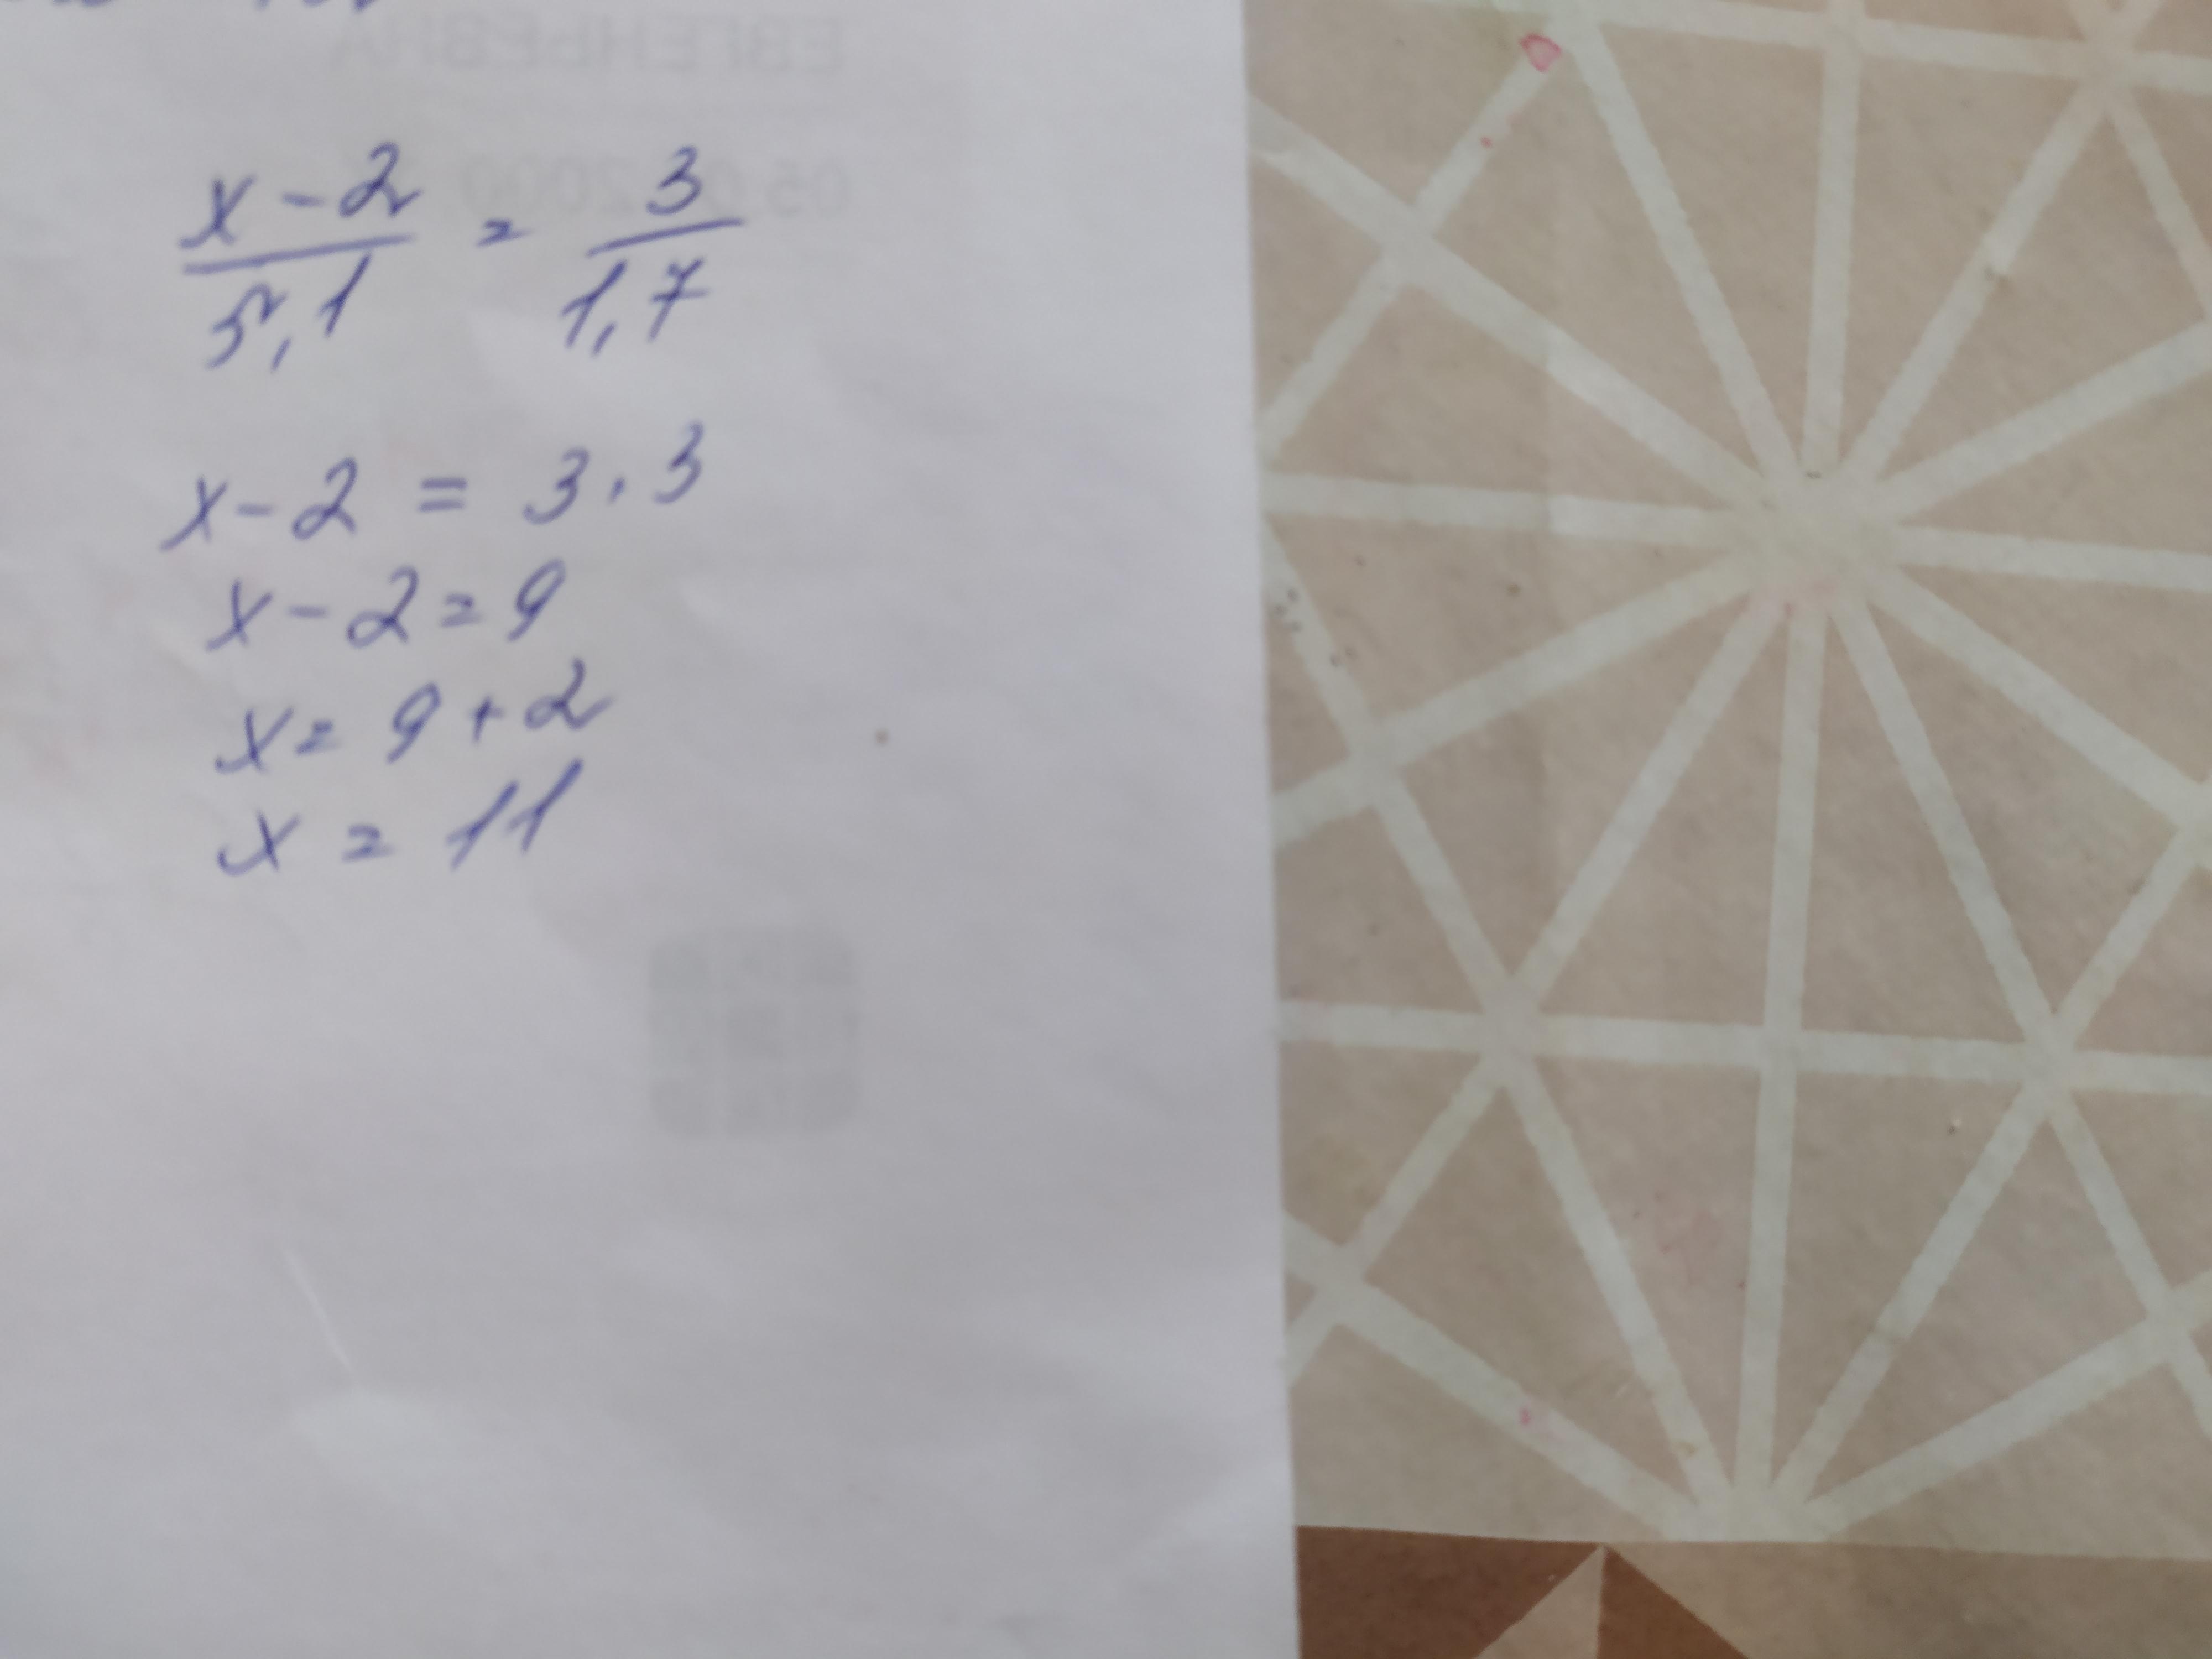 ЕВГЕНЬЕВНА
x-2/5,1 = 3/1,7
x-2 = 3·3
x-2=9
x= 9+2
x = 11